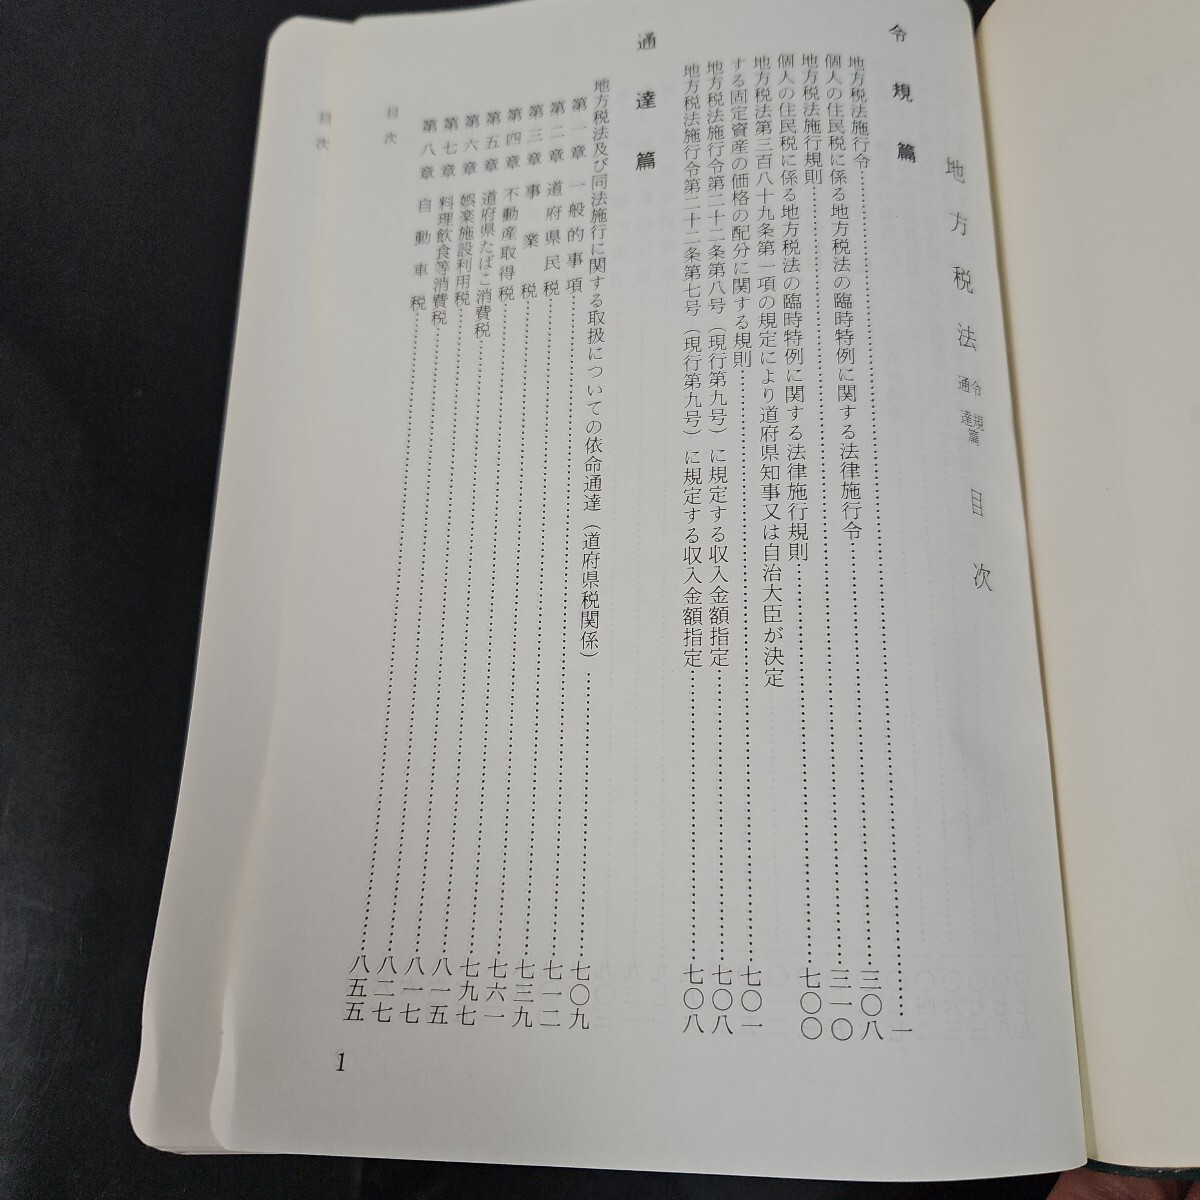 地方税法 令規 通達 篇 目次
令規篇
地方税法施行令……一
個人の住民税に係る地方税法の臨時特例に関する法律施行令……三〇八
地方税法施行規則……三一〇
個人の住民税に係る地方税法の臨時特例に関する法律施行規則……七〇〇
地方税法第三百八十九条第一項の規定により道府県知事又は自治大臣が決定
する固定資産の価格の配分に関する規則……七〇一
地方税法施行令第二十二条第八号（現行第九号）に規定する収入金額指定……七〇八
地方税法施行令第二十二条第七号（現行第九号）に規定する収入金額指定……七〇八
通達篇
地方税法及び同法施行に関する取扱についての依命通達（道府県税関係）……七〇九
第一章 一般的事項……七一二
第二章 道府県民税……七三九
第三章 事業税……七六一
第四章 不動産取得税……七九七
第五章 道府県たばこ消費税……八一五
第六章 娯楽施設利用税……八一七
第七章 料理飲食等消費税……八二七
第八章 自動車税……八五五
目次
1
目次